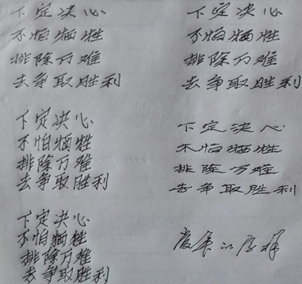 下定决心
不怕牺牲
排除万难
去争取胜利
下定决心
不怕牺牲
排除万难
去争取胜利
下定决心
不怕牺牲
排除万难
去争取胜利
下定决心
不怕牺牲
排除万难
去争取胜利
下定决心
不怕牺牲
排除万难
去争取胜利